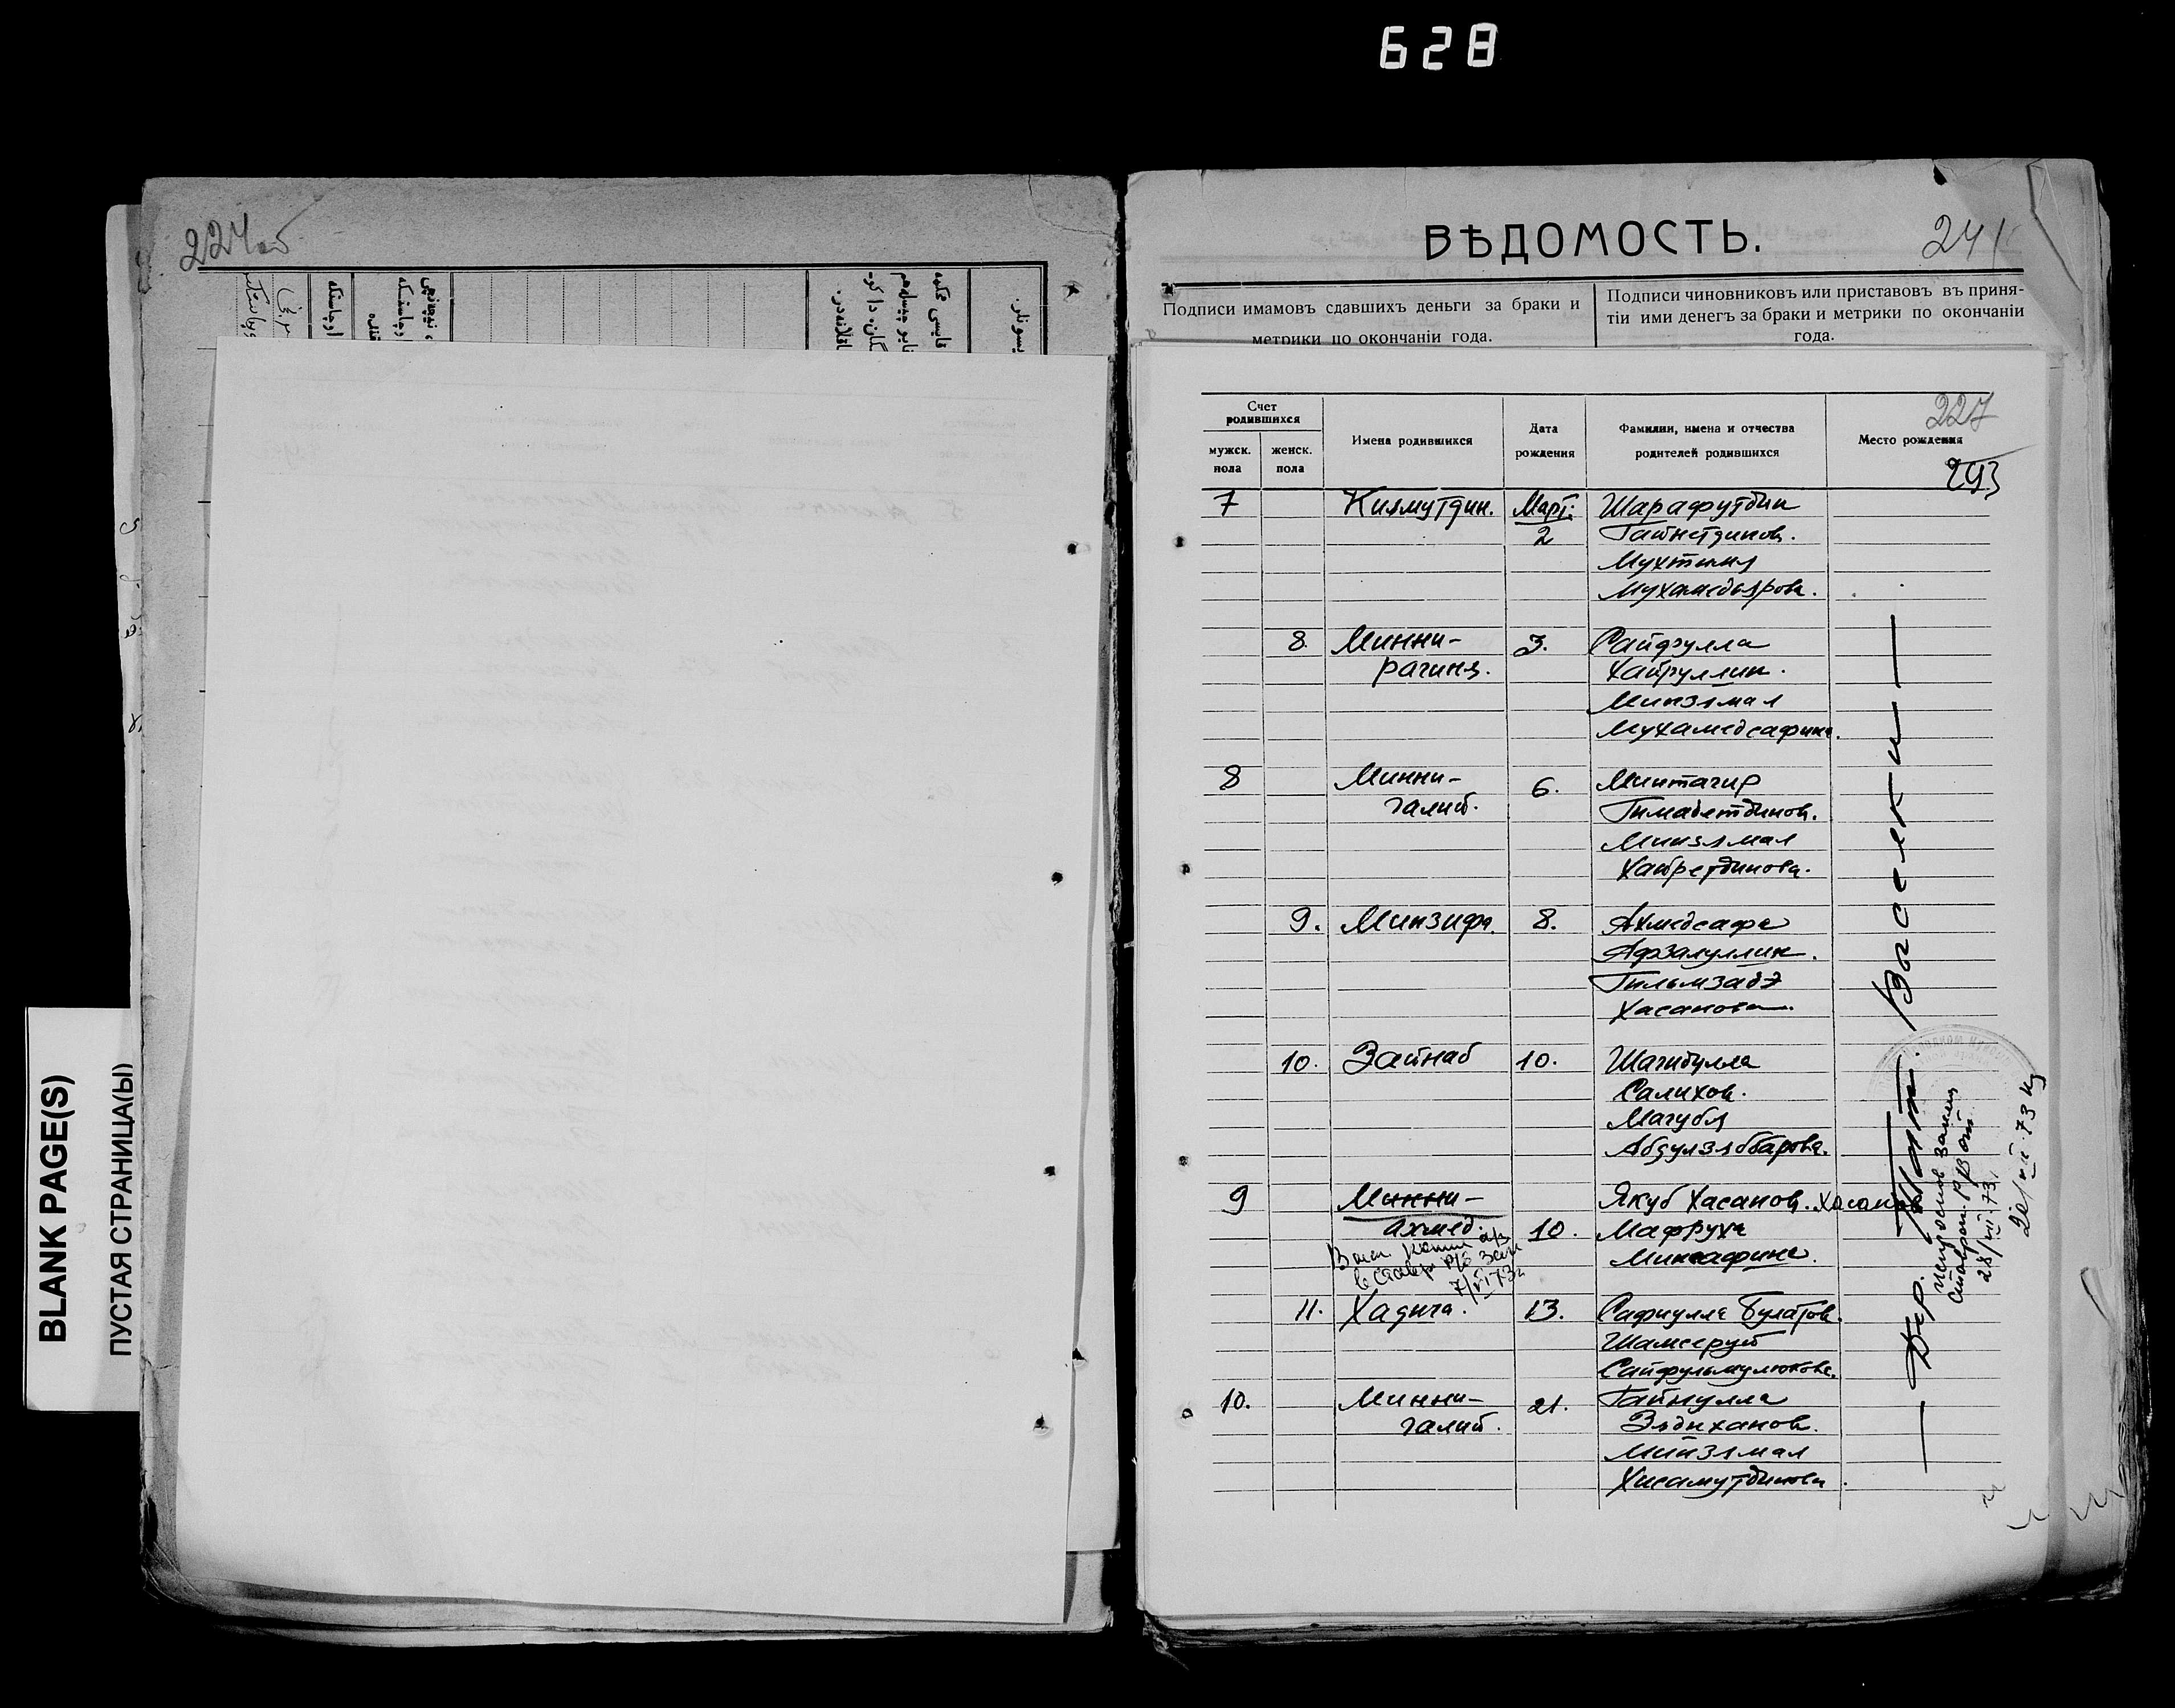 628
227об
BLANK PAGE(S)
ПУСТАЯ СТРАНИЦА(Ы)
ВѢДОМОСТЬ.
241
Подписи имамовъ сдавшихъ деньги за браки и
метрики по окончаніи года.
Подписи чиновниковъ или приставовъ въ приня-
тіи ими денегъ за браки и метрики по окончаніи
года.
Счет
родившихся
мужск.
пола
женск.
пола
Имена родившихся
Дата
рождения
Фамилии, имена и отчества
родителей родившихся
Место рождения
227
293
7 Киямутдин. Март: Шарафутдин
2 Гайнетдинов.
Мухтыия
Мухамедьярова.
8. Минни- 3. Сайфулла
рагиня. Хайруллин.
Минзямал
Мухамедсафина.
8 Минни- 6. Минтагир
галий. Гимадетдинов.
Минзямал
Хайретдинова.
9. Минзифа. 8. Ахмедсафа
Афзалуллин.
Гильмзадэ
Хасанова.
10. Зайнаб 10. Шагибулла
Салихов.
Магубя
Абдулзяббарова.
9 Минни- Якуб Хасанов. Хасан
ахмед. 10. Мафруха
Минсафина.
7/VI 73г
11. Хадича. 13. Сафиулла Булатов.
Шамсеруй
Сайфульмулюкова.
10. Минни- 21. Гайнулла
галий. Зядиханов.
Минзямал
Хисамутдинова.
— Дер. Мат. Васелки —
28/VII-73г.